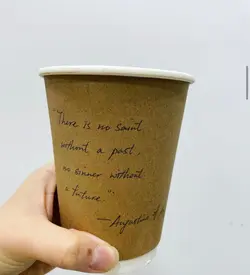 "There is no saint
without a past,
no sinner without
a future."
— Augustine